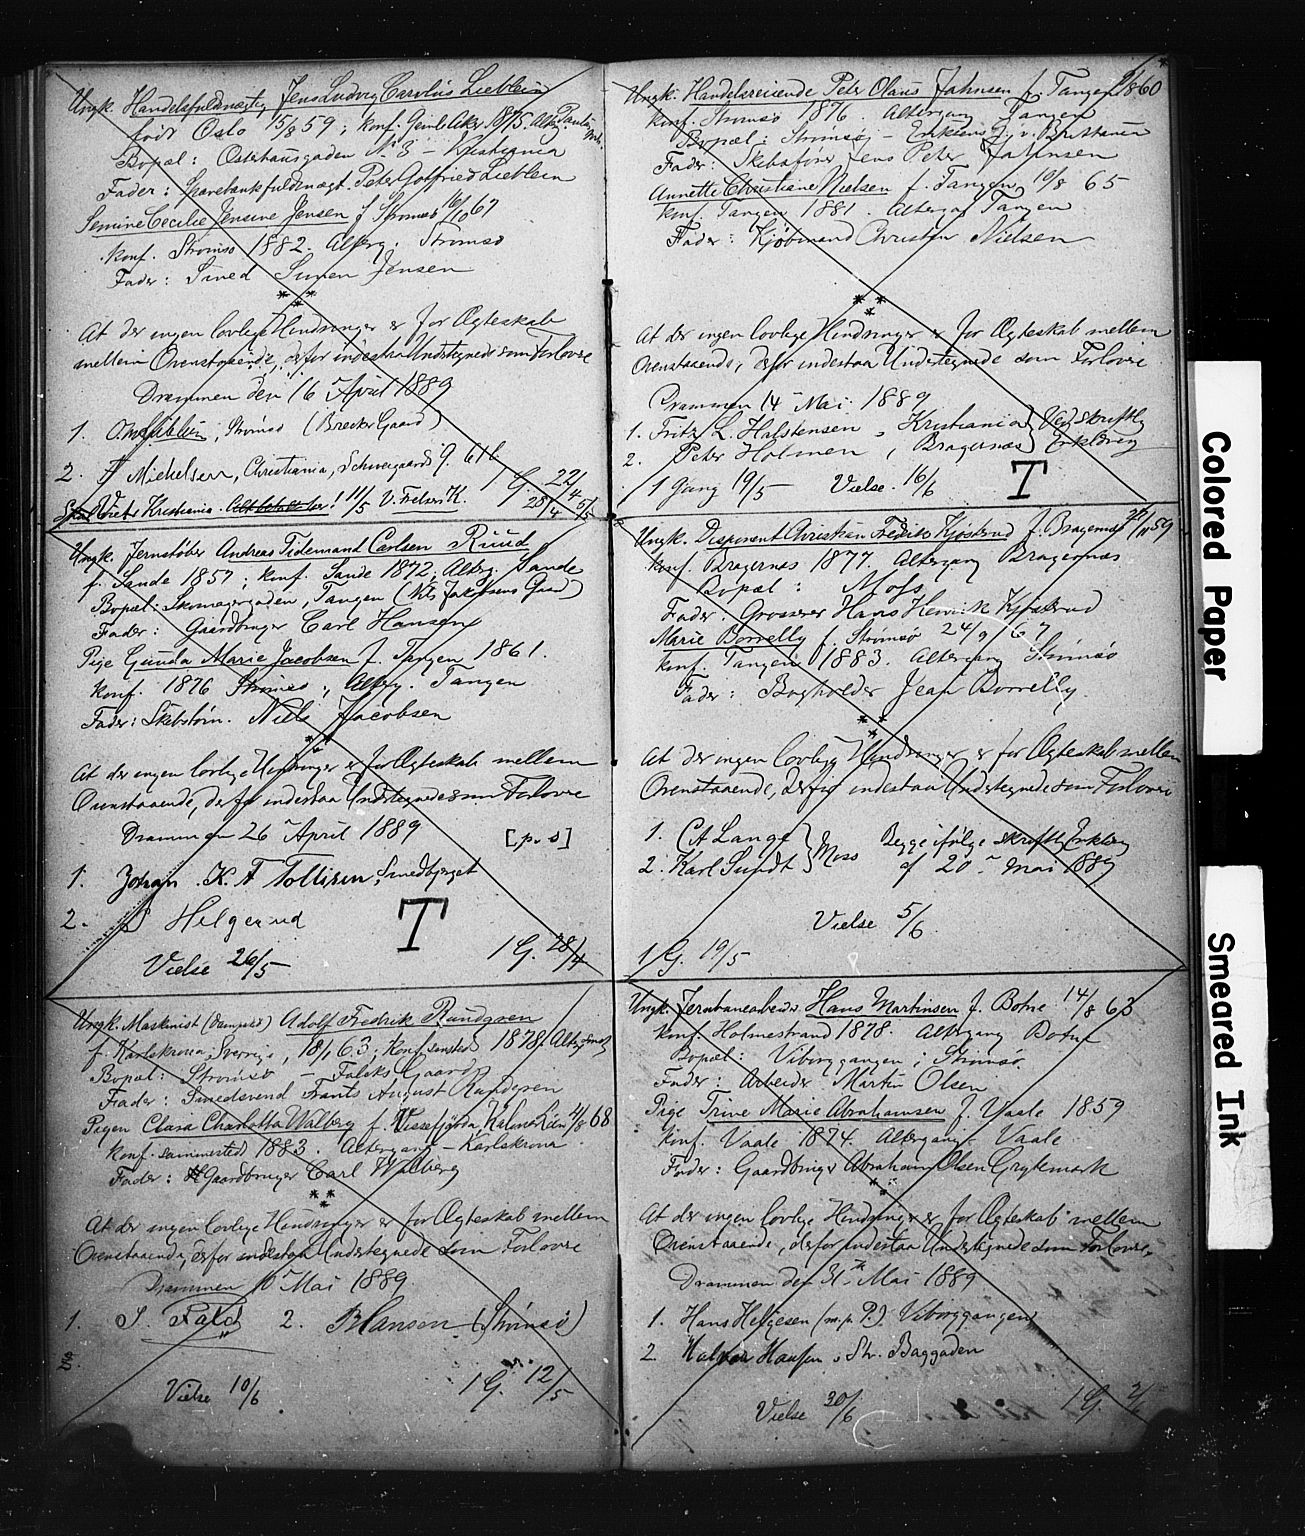 Ungk. Handelsfuldmægtig Jens Ludvig Carolus Lieblein
født Oslo 15/8 59; konf. Gamle Aker 1875. Altg.
Bopæl: Østerhausgaden No 3 - Kristiania
Fader: Sparebankfuldmægt. Peter Gotfried Lieblein
Semine Cecilie Jensine Jensen f. Strømsø 16/10 67
konf. Strømsø 1882. Alterg: Strømsø
Fader: Smed Simen Jensen
At der ingen lovlige Hindringer er for Ægteskab
mellem Ovenstaaende, derfor indestaa Undertegnede som Forlovere
Drammen den 16 April 1889
1. Lieblein, Strømsø (Brecke Gaard)
2. Michelsen, Christiania, Schweigaards g. 61b
1 G. 22/4 28/4 5/5
Kristiania 11/5 V. Fredrik K.
Ungk. Jernstøber Andreas Tidemand Carlsen Ruud
f. Sande 1857; konf. Sande 1872; Alterg. Sande
Bopæl: Skomagergaden, Tangen (Nils Jakobsens Gaard)
Fader: Gaardbruger Carl Hansen
Pige Gunda Marie Jacobsen f. Tangen 1861.
konf. 1876 Strømsø; Alterg. Tangen
Fader: Skibstøm. Niels Jacobsen
At der ingen lovlige Hindringer er for Ægteskab mellem
Ovenstaaende, derfor indestaa Undertegnede som Forlovere
Drammen 26 April 1889 [p. s]
1. Johan K. A Tollisen, Smedbjerget
2. S Helgerud T
Vielse 26/5 1 G. 28/4
Ungk. Maskinist (Dampskib) Adolf Fredrik Rundgren
f. Karlskrona, Sverige, 18/1 63; konf. sammested 1878. Alterg.
Bopæl: Strømsø - Falcks Gaard
Fader: Smedsvend Frants August Rundgren
Pigen Clara Charlotta Walberg f. Vissefjerda, Kalmar Län 4/8 68
konf. sammested 1883. Altergang - Karlskrona
Fader: Gaardbruger Carl Walberg
At der ingen lovlige Hindringer er for Ægteskab mellem
Ovenstaaende, derfor indestaa Undertegnede som Forlovere
Drammen 10 Mai 1889.
1. S. Falck 2. B Hansen (Strømsø)
2.
Vielse 10/6 1 G. 12/5
Ungk: Handelsreisende Peter Olaus Jahnsen f. Tangen 1860
konf. Strømsø 1876. Altergang Tangen
Bopæl: Strømsø - Enkens J. v. Britania
Fader: Skibsfører Jens Peter Jahnsen
Annette Christiane Nielsen f. Tangen 10/8 65
konf. Tangen 1881. Alterg. Tangen
Fader: Kjøbmand Christen Nielsen
At der ingen lovlige Hindringer er for Ægteskab mellem
Ovenstaaende, derfor indestaa Undertegnede som Forlovere
Drammen 14 Mai 1889
1. Fritz L. Halstensen, Kristiania } Ved skriftlig
2. Peter Holmen, Bragernæs } Erklæring
1 Gang 19/5 - Vielse 16/6 T
Ungk. Disponent Christian Fredrik Kjøstrud f. Bragernæs 59
konf. Bragernæs 1877. Altergang Bragernæs
Bopæl: Moss
Fader: Grosserer Hans Henrik Kjøstrud
Marie Borrelly f. Strømsø 24/9 67
konf. Tangen 1883. Altergang Strømsø
Fader: Bogholder Jean Borrelly.
At der ingen lovlige Hindringer er for Ægteskab mellem
Ovenstaaende, derfor indestaa Undertegnede som Forlovere
1. CA Lange } Moss Begge ifølge skriftlig Erklæring
2. Karl Sundt } af 20 Mai 1889
Vielse 5/6
1 G. 19/5
Ungk. Jernbanearbeider Hans Martinsen f. Botne 14/8 63
konf. Holmestrand 1878 Altergang Botne
Bopæl: Viborggangen i Strømsø.
Fader: Arbeider Martin Olsen
Pige Trine Marie Abrahamsen f. Vaale 1859
konf. Vaale 1874. Altergang - Vaale
Fader: Gaardbruger Abraham Olsen Grytemark
At der ingen lovlige Hindringer er for Ægteskab mellem
Ovenstaaende, derfor indestaa Undertegnede som Forlovere.
Drammen den 31 Mai 1889
1. Hans Helgesen (m. p. P.) Viborggangen
2. Halvor Hansen, Str. Baggaden
Vielse 30/6 1 G. 2/6
Colored Paper
Smeared Ink